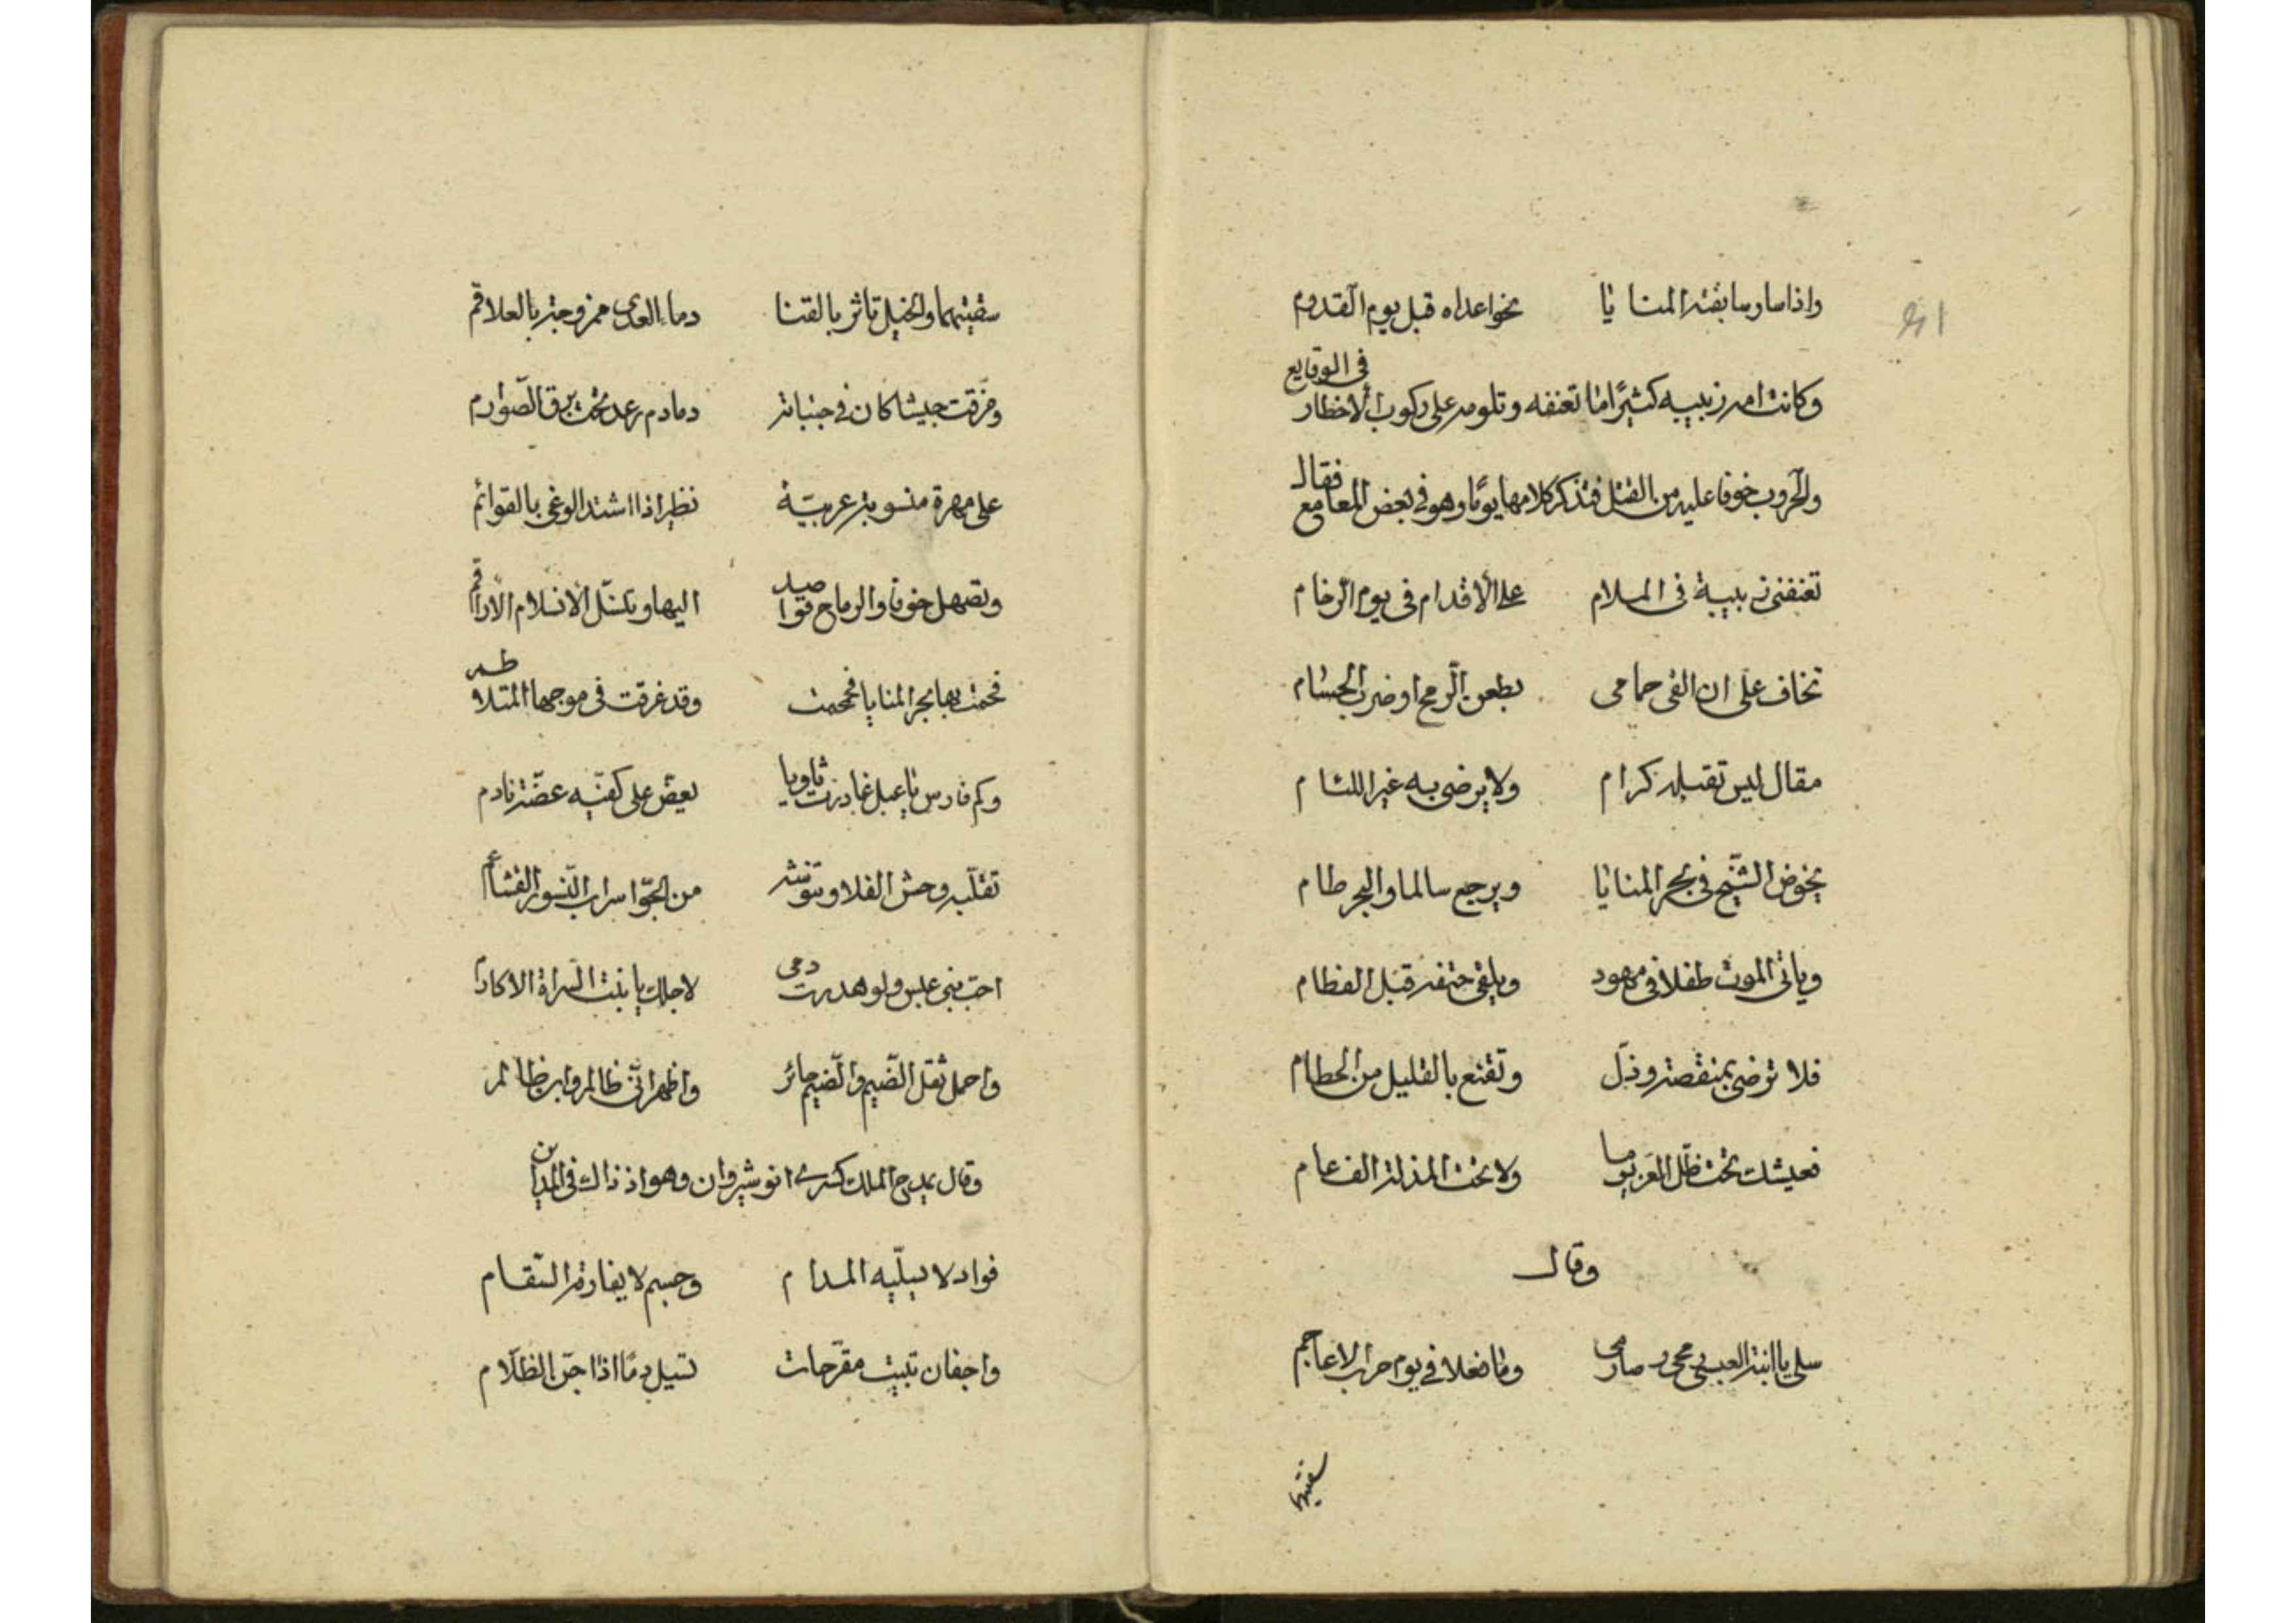 واذا سار سابقته المنايا نحو اعداه قبل يوم القدوم
وكانت امه زبيبه كثيرًا ما تعنفه وتلومه على ركوب الاخطار في الوقايع
والحروب خوفا عليه من القتل فتذكر كلامها يومًا وهو في بعض المعامع فقال
تعنفني زبيبة في الملام على الأقدام في يوم الزحام
تخاف علي ان القى حمامي بطعن الرمح او ضرب الحسام
مقال ليس تقبله كرام ولا يرضى به غير اللئام
يخوض الشيخ في بحر المنايا ويرجع سالما والبحر طام
وياتي الموت طفلا في مهود ويلقى حتفه قبل الفطام
فلا ترضى بمنقصة وذل وتقنع بالقليل من الحطام
فعيشك تحت ظل العز يوما ولا تحت المذلة الف عام
وقال
سلي يا ابنة العبسي رمحي وصارمي وما فعلا في يوم حرب الاعاجم
سقيتهما
سقيتهما والخيل تاثر بالقنا دماء العدى ممزوجة بالعلاقم
وفرقت جيشا كان في جنباته دمادم رعد تحت برق الصوارم
على مهرة منسوبة عربية تطير اذا اشتد الوغى بالقوائم
وتصهل خوفا والرماح قواصد اليها وتنسل الانسلام الاراقم
فحمت بها بحر المنايا فحمحمت وقد غرقت في موجها المتلاطم
وكم فارس يا عبل غادرت ثاويا يعض على كفيه عضة نادم
تقلبه وحش الفلا وتنوشه من الجو اسراب النسور القشاعم
احب بني عبس ولو هدرت دمي لاجلك يا بنت السراة الاكارم
واحمل ثقل الضيم والضيم جائر واظهر اني ظالم وابن ظالم
وقال يمدح الملك كسرى انوشروان وهو اذ ذاك في المداين
فواد لا يسليه المدام وجسم لا يفارقه السقام
واجفان تبيت مقرحات تسيل دمًا اذا جن الظلام